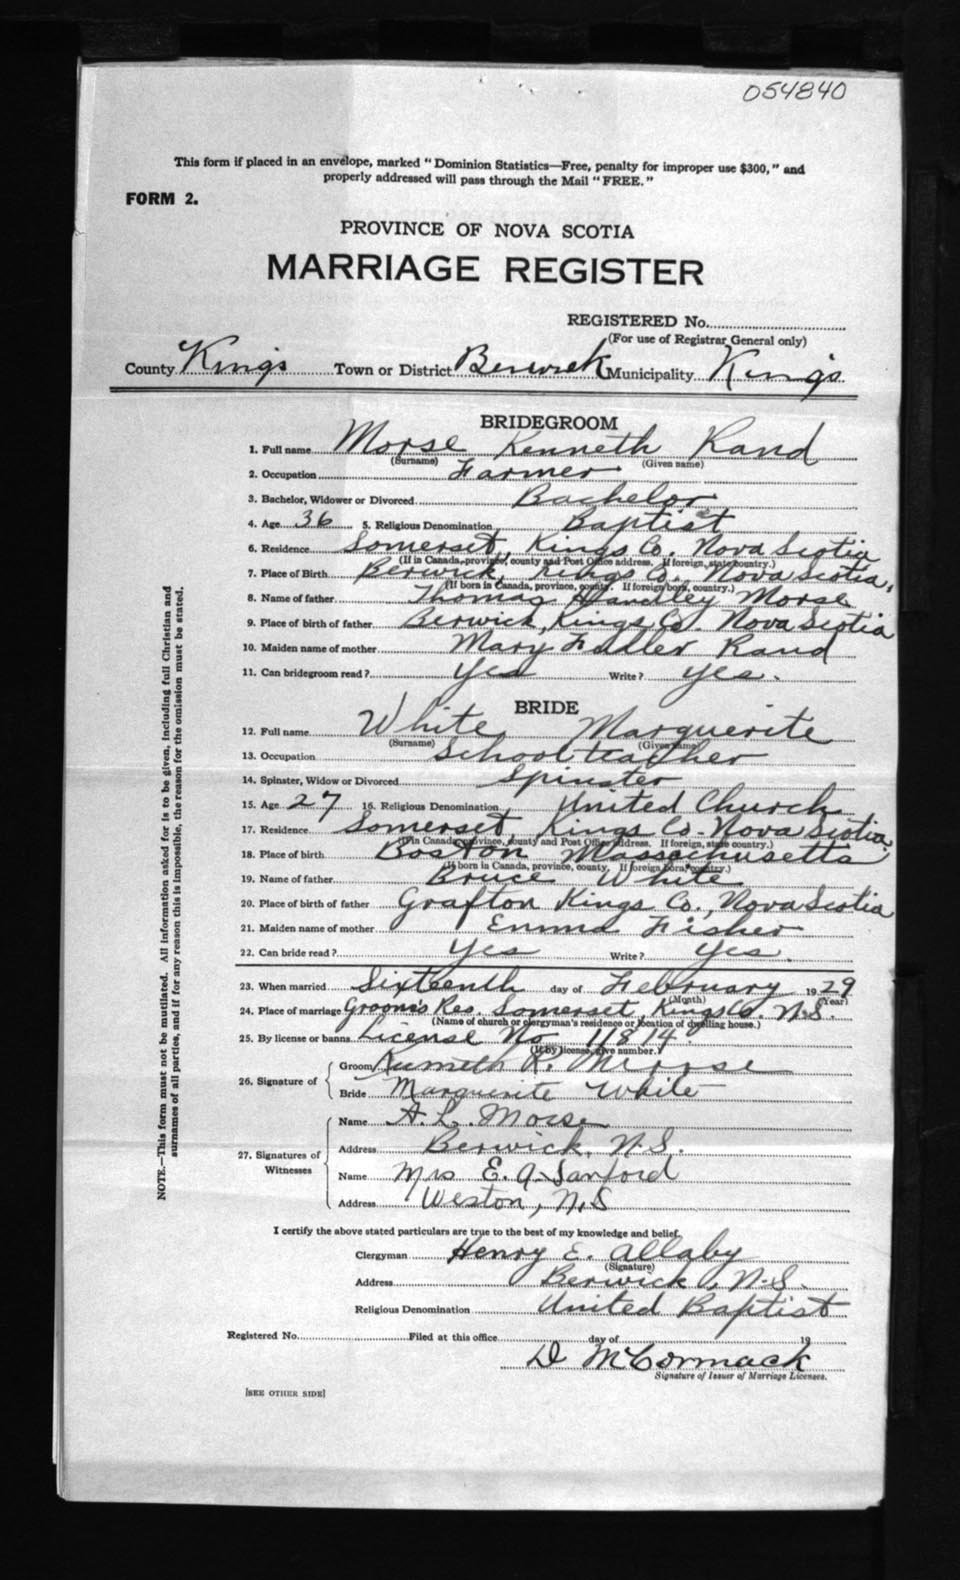 054840
This form if placed in an envelope, marked "Dominion Statistics—Free, penalty for improper use $300," and
properly addressed will pass through the Mail "FREE."
FORM 2.
PROVINCE OF NOVA SCOTIA
MARRIAGE REGISTER
REGISTERED No.
(For use of Registrar General only)
County Kings Town or District Berwick Municipality Kings
BRIDEGROOM
1. Full name Morse Kenneth Rand
(Surname) (Given name)
2. Occupation Farmer
3. Bachelor, Widower or Divorced Bachelor
4. Age 36 5. Religious Denomination Baptist
6. Residence Somerset, Kings Co. Nova Scotia
(If in Canada, province, county and Post Office address. If foreign, state country.)
7. Place of Birth Berwick, Kings Co. Nova Scotia,
(If born in Canada, province, county. If foreign born, country.)
8. Name of father Thomas Handley Morse
9. Place of birth of father Berwick, Kings Co. Nova Scotia
10. Maiden name of mother Mary Rand
11. Can bridegroom read? Yes Write? Yes.
BRIDE
12. Full name White Marguerite
(Surname) (Given name)
13. Occupation School teacher
14. Spinster, Widow or Divorced Spinster
15. Age 27 16. Religious Denomination United Church
17. Residence Somerset, Kings Co. Nova Scotia,
(If in Canada, province, county and Post Office address. If foreign, state country.)
18. Place of birth Boston Massachusetts
(If born in Canada, province, county. If foreign born, country.)
19. Name of father Bruce White
20. Place of birth of father Grafton Kings Co., Nova Scotia
21. Maiden name of mother Emma Fisher
22. Can bride read? Yes Write? Yes.
23. When married Sixteenth day of February 1929
(Month) (Year)
24. Place of marriage Groom's Res. Somerset, Kings Co. N.S.
(Name of church or clergyman's residence or location of dwelling house.)
25. By license or banns License No 11814
(If by license, give number.)
26. Signature of
Groom Kenneth R. Morse
Bride Marguerite White
27. Signatures of Witnesses
Name A. L. Morse
Address Berwick, N.S.
Name Mrs E. A. Sanford
Address Weston, N.S
I certify the above stated particulars are true to the best of my knowledge and belief.
Clergyman Henry E. Allaby
(Signature)
Address Berwick, N.S.
Religious Denomination United Baptist
Registered No. Filed at this office day of 19
D McCormack
Signature of Issuer of Marriage Licenses.
[SEE OTHER SIDE]
NOTE.—This form must not be mutilated. All information asked for is to be given, including full Christian and
surnames of all parties, and if for any reason this is impossible, the reason for the omission must be stated.